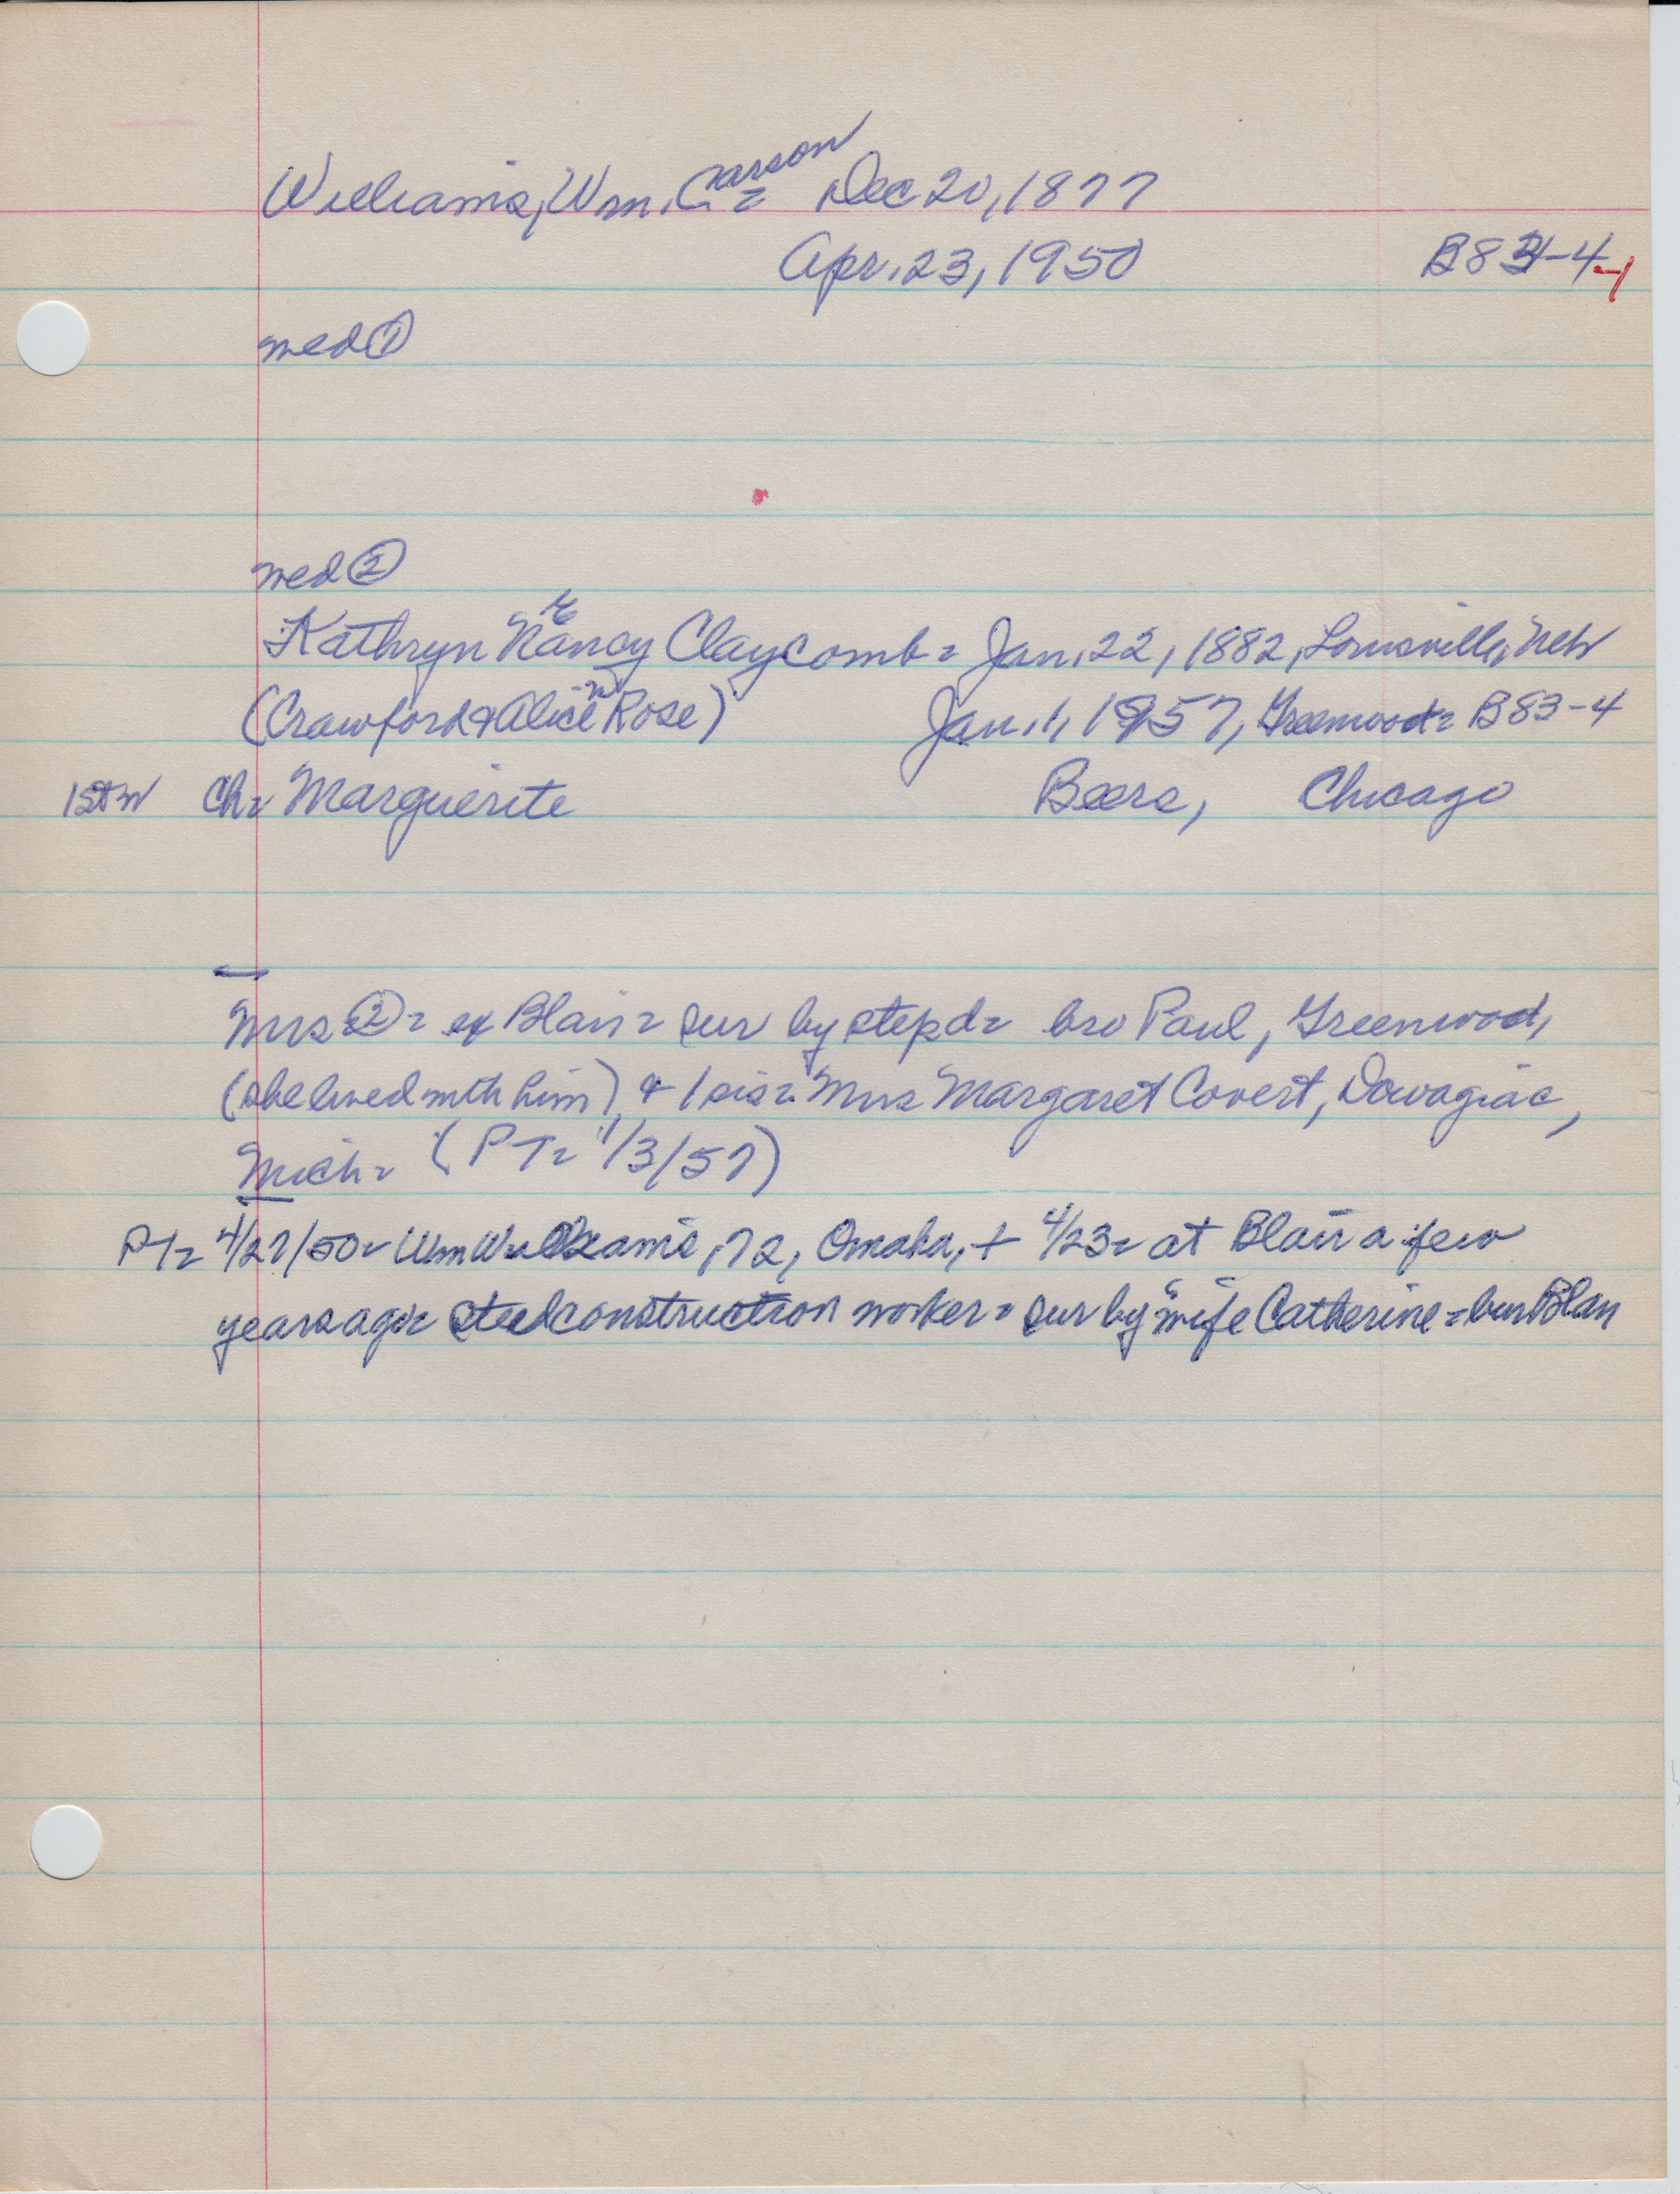 Williams, Wm. Carson = Dec 20, 1877
Apr. 23, 1950 B83-4-1
med ①
med ②
Kathryn Nancy Claycomb = Jan. 22, 1882, Louisville, Neb
(Crawford & Alice Rose) Jan. 1, 1957, Greenwood = B83-4
1st W Ch = Marguerite Beers, Chicago
Mrs ② = ex Blair = sur by stepd = bro Paul, Greenwood,
(she lived with him), & 1 sis = Mrs Margaret Covert, Dowagiac,
Mich = (PT = 1/3/57)
PT = 4/27/50 = Wm Williams, 72, Omaha, + 4/23 = at Blair a few
years ago = steel construction worker = sur by "wife Catherine = bur Blair